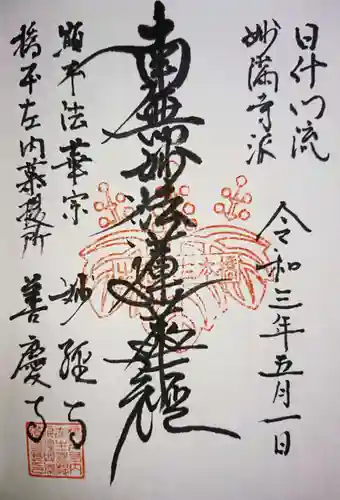 日什門流
妙満寺派
令和三年五月一日
南無妙法蓮華経
顕本法華宗 妙経寺
橋本左内墓提所 善慶寺